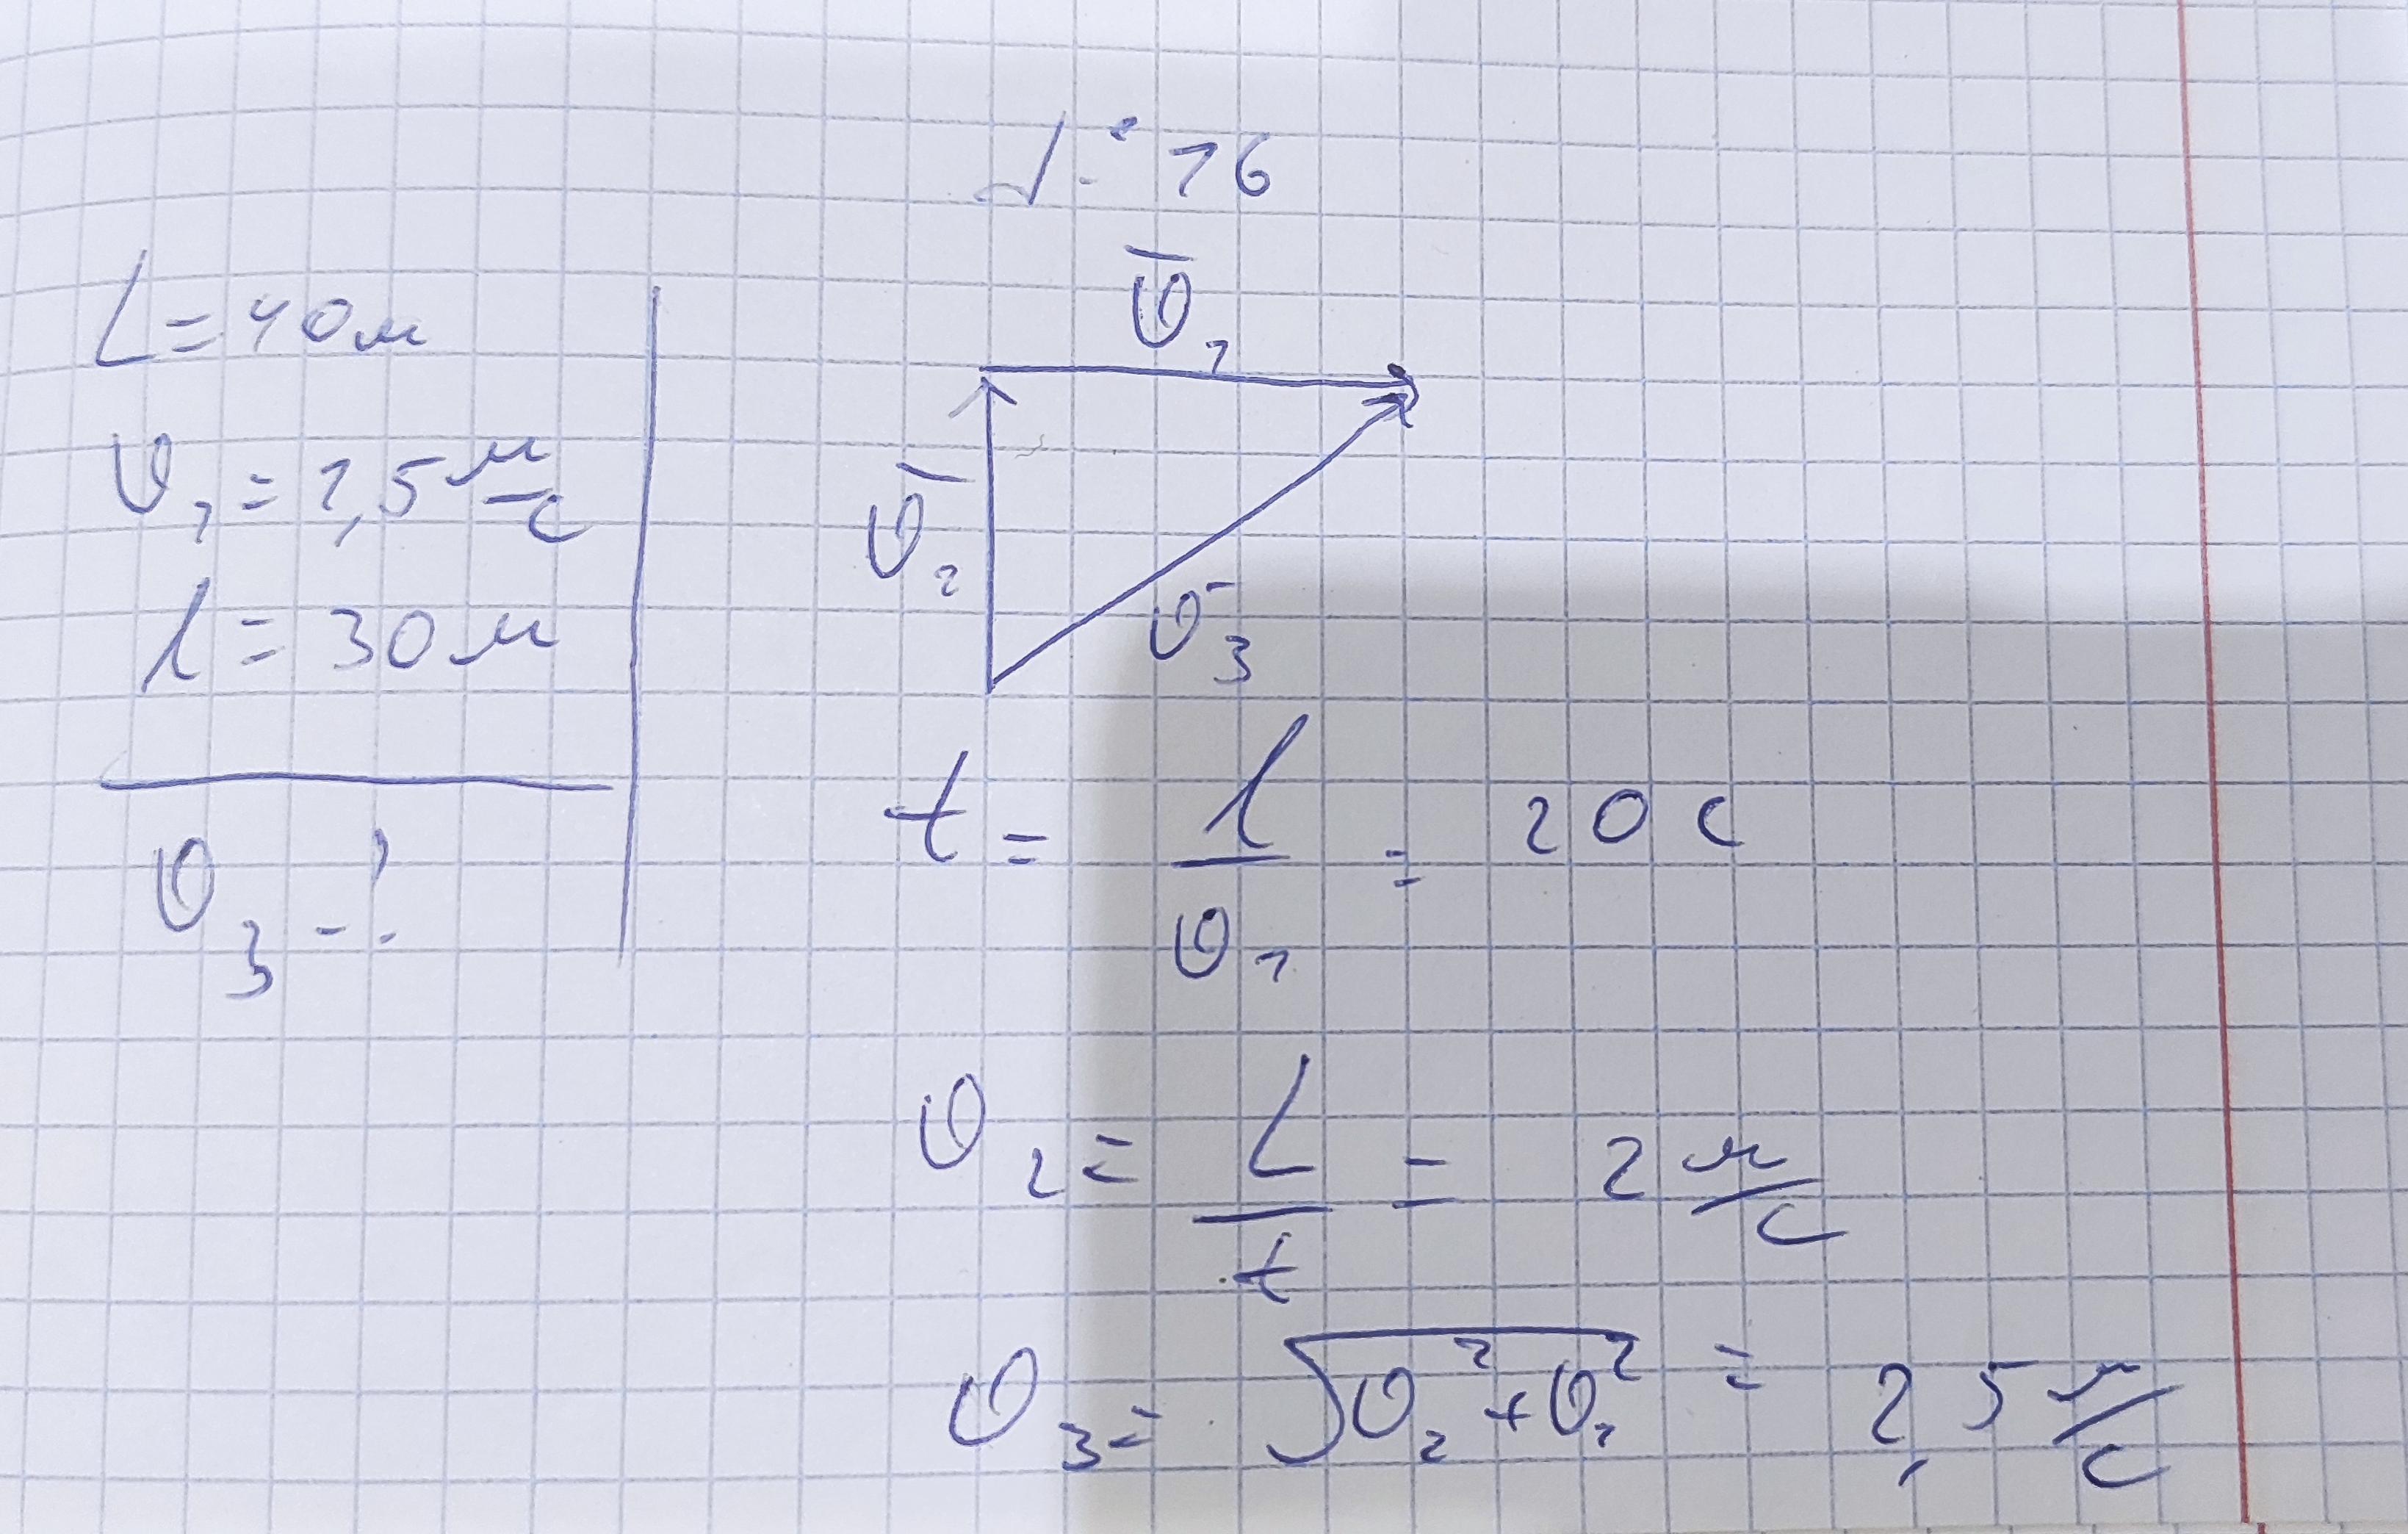 № 16
L = 40 м
υ₁ = 1,5 м/с
l = 30 м
υ₃ - ?
υ̅₁
υ̅₂
υ̅₃
t = l/υ₁ = 20 с
υ₂ = L/t = 2 м/с
υ₃ = √(υ₂² + υ₁²) = 2,5 м/с